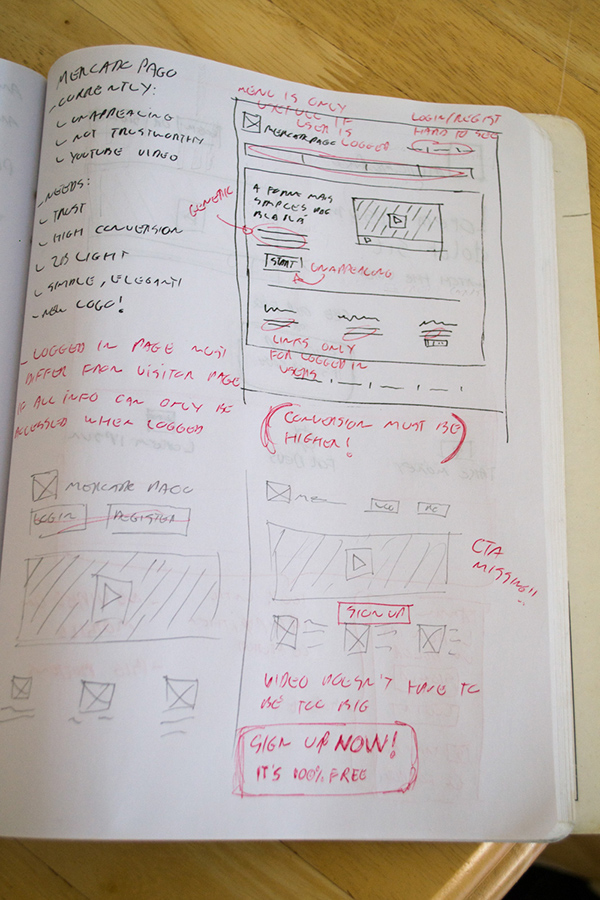 MERCADO PAGO
- CURRENTLY:
UNAPPEALING
NOT TRUSTWORTHY
YOUTUBE VIDEO
- NEEDS:
TRUST
HIGH CONVERSION
LIGHT
SIMPLE, ELEGANT!
NEW LOGO!
- LOGGED IN PAGE MUST
DIFFER FROM VISITOR PAGE
IF ALL INFO CAN ONLY BE
ACCESSED WHEN LOGGED
MENU IS ONLY
USEFULL IF
USER IS
LOGGED
LOGIN/REGIST
HARD TO SEE
MERCADOPAGO
A FORMA MAIS
SIMPLES
GENERIC
START!
UNAPPEALING
LINKS ONLY
FOR LOGGED IN
USERS
(CONVERSION MUST BE
HIGHER!)
MERCADO PAGO
LOGIN
REGISTER
CTA
MISSING!!
SIGN UP
VIDEO DOESN'T HAVE TO
BE TOO BIG
SIGN UP NOW!
IT'S 100% FREE